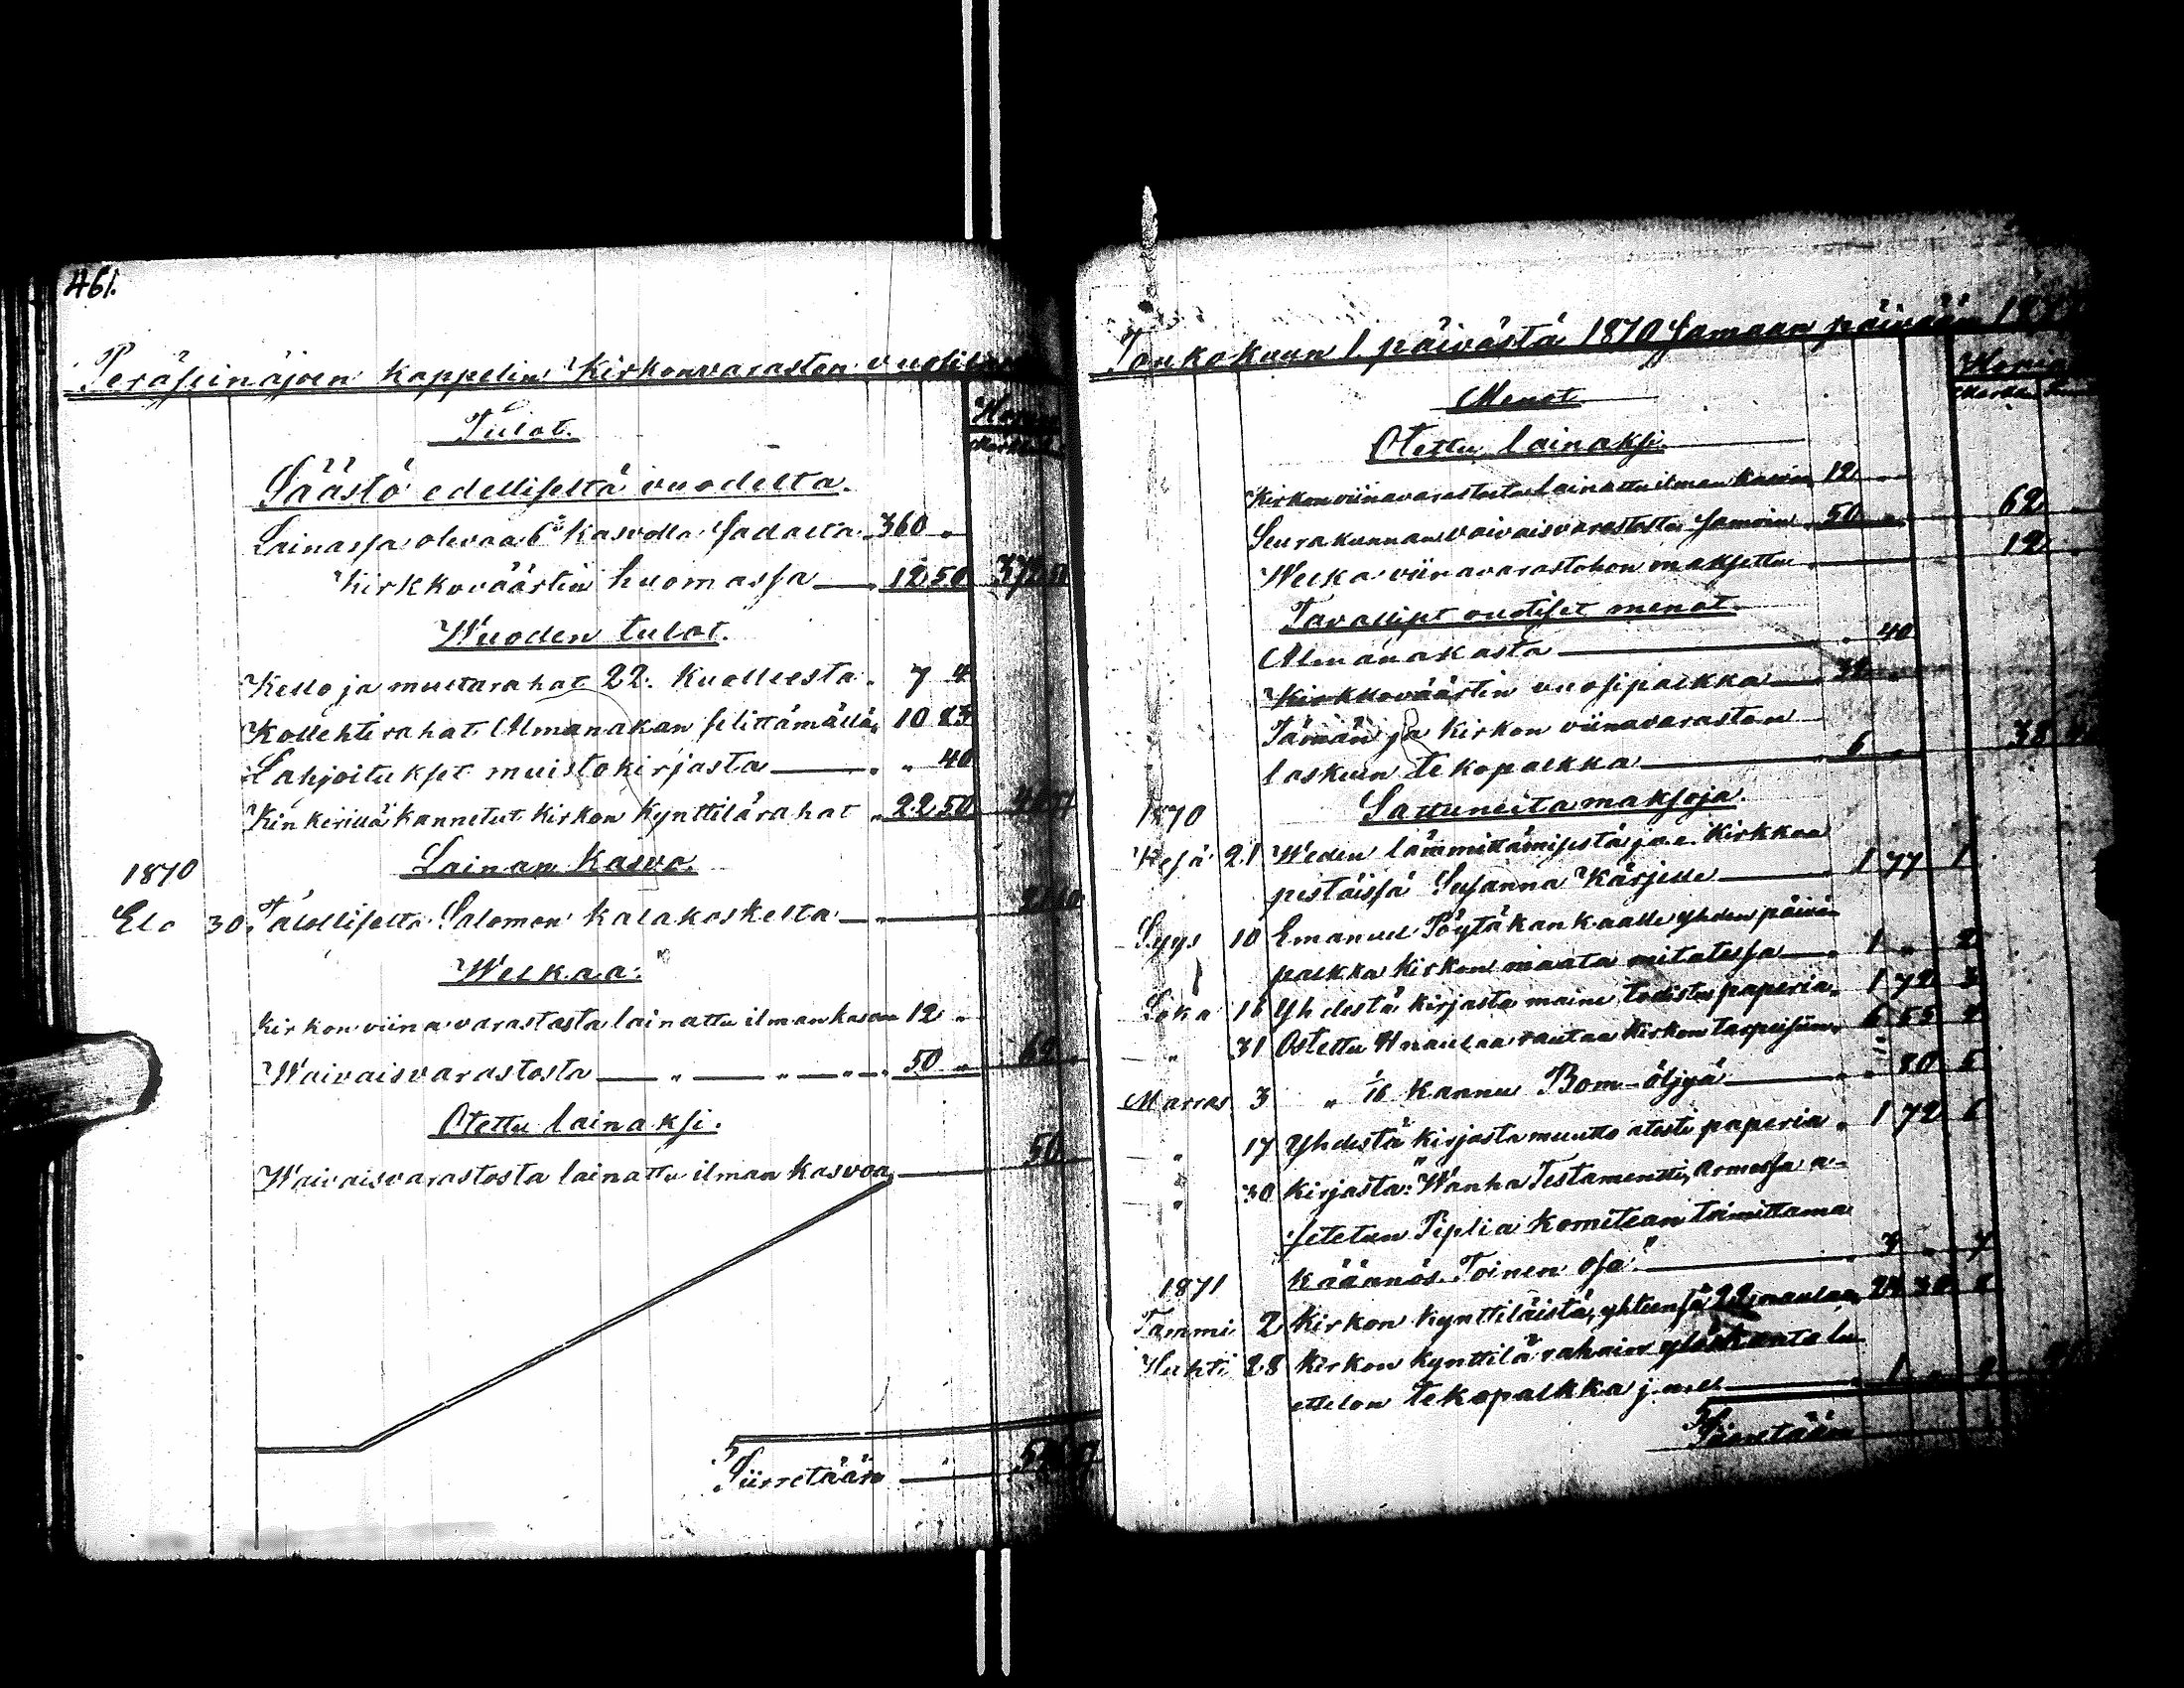 461.
Peräseinäjoen kappelin Kirkonvaraston
Tulot.
Säästö edelliseltä vuodelta.
Lainassa olevaa 6% kasvolla Sadalta 360 "
Kirkkoväärtin huomassa — " 12 50
Wuoden tulot.
Kello ja multarahat 22. kuolleesta " 7 4
Kollehtirahat Almanakan selittämällä " 10 83
Lahjoitukset muistokirjasta — " " 40
Kinkerillä kannetut kirkon kynttilärahat " 22 50
Lainan Kasvo.
1870
Elo 30. Talollis​elta Salomon Kalakoskelta — "
Welkaa.
Kirkon viinavarastosta lainattu ilman kasvoa 12 "
Waivaisvarastosta — " — " — " — " 50 " 62
Otettu lainaksi.
Waivaisvarastosta lainattu ilman kasvoa — 50
Siirretään —
Toukokuun 1. päivästä 1870 Samaan päivään
Menot.
Otettu lainaksi.
Kirkonviinavarastosta lainattu ilman kasvoa 12 "
Seurakunnan vaivaisvarastosta samoin " 50 " 62
Welka viinavarastohon maksettu " — 12
Tavalliset vuotiset menot.
Almanakasta — " " 40
Kirkkoväärtin vuosipalkka — " 32 "
Tämän ja kirkon viinavaraston
laskuin tekopalkka — " 6 " 38
Sattuneita maksoja.
1870
Kesä 21 Weden lämmittämisestä j.n.e. kirkkoa
pestäissä Susanna Kärjelle — " 1 77 1
Syys 10 Emanuel Pöytäkankaalle yhden päivän
palkka kirkon maata mitatessa — " 1 " 2
Loka 16 Yhdestä kirjasta maine todistus paperia " 1 72 3
" 31 Ostettu naulaa rautaa kirkon tarpeisiin " 6 55 4
Marras 3 " 1/16 kannu Bom-öljyä — " " 80 5
" 17 Yhdestä kirjasta muutto atesti paperia " 1 72 6
" 30 kirjasta: "Wanha Testamentti, armossa a-
setetun Piplia Komitean toimittama
käännös. Toinen osa" — " 3 " 7
1871
Tammi 2 Kirkon kynttilöistä, yhteensä 22 naulaa 24 30 8
Huhti 28 Kirkon kynttilärahain ylöskanto lu-
ettelon tekopalkka j.n.e. — " 1 " 9
Siirretään